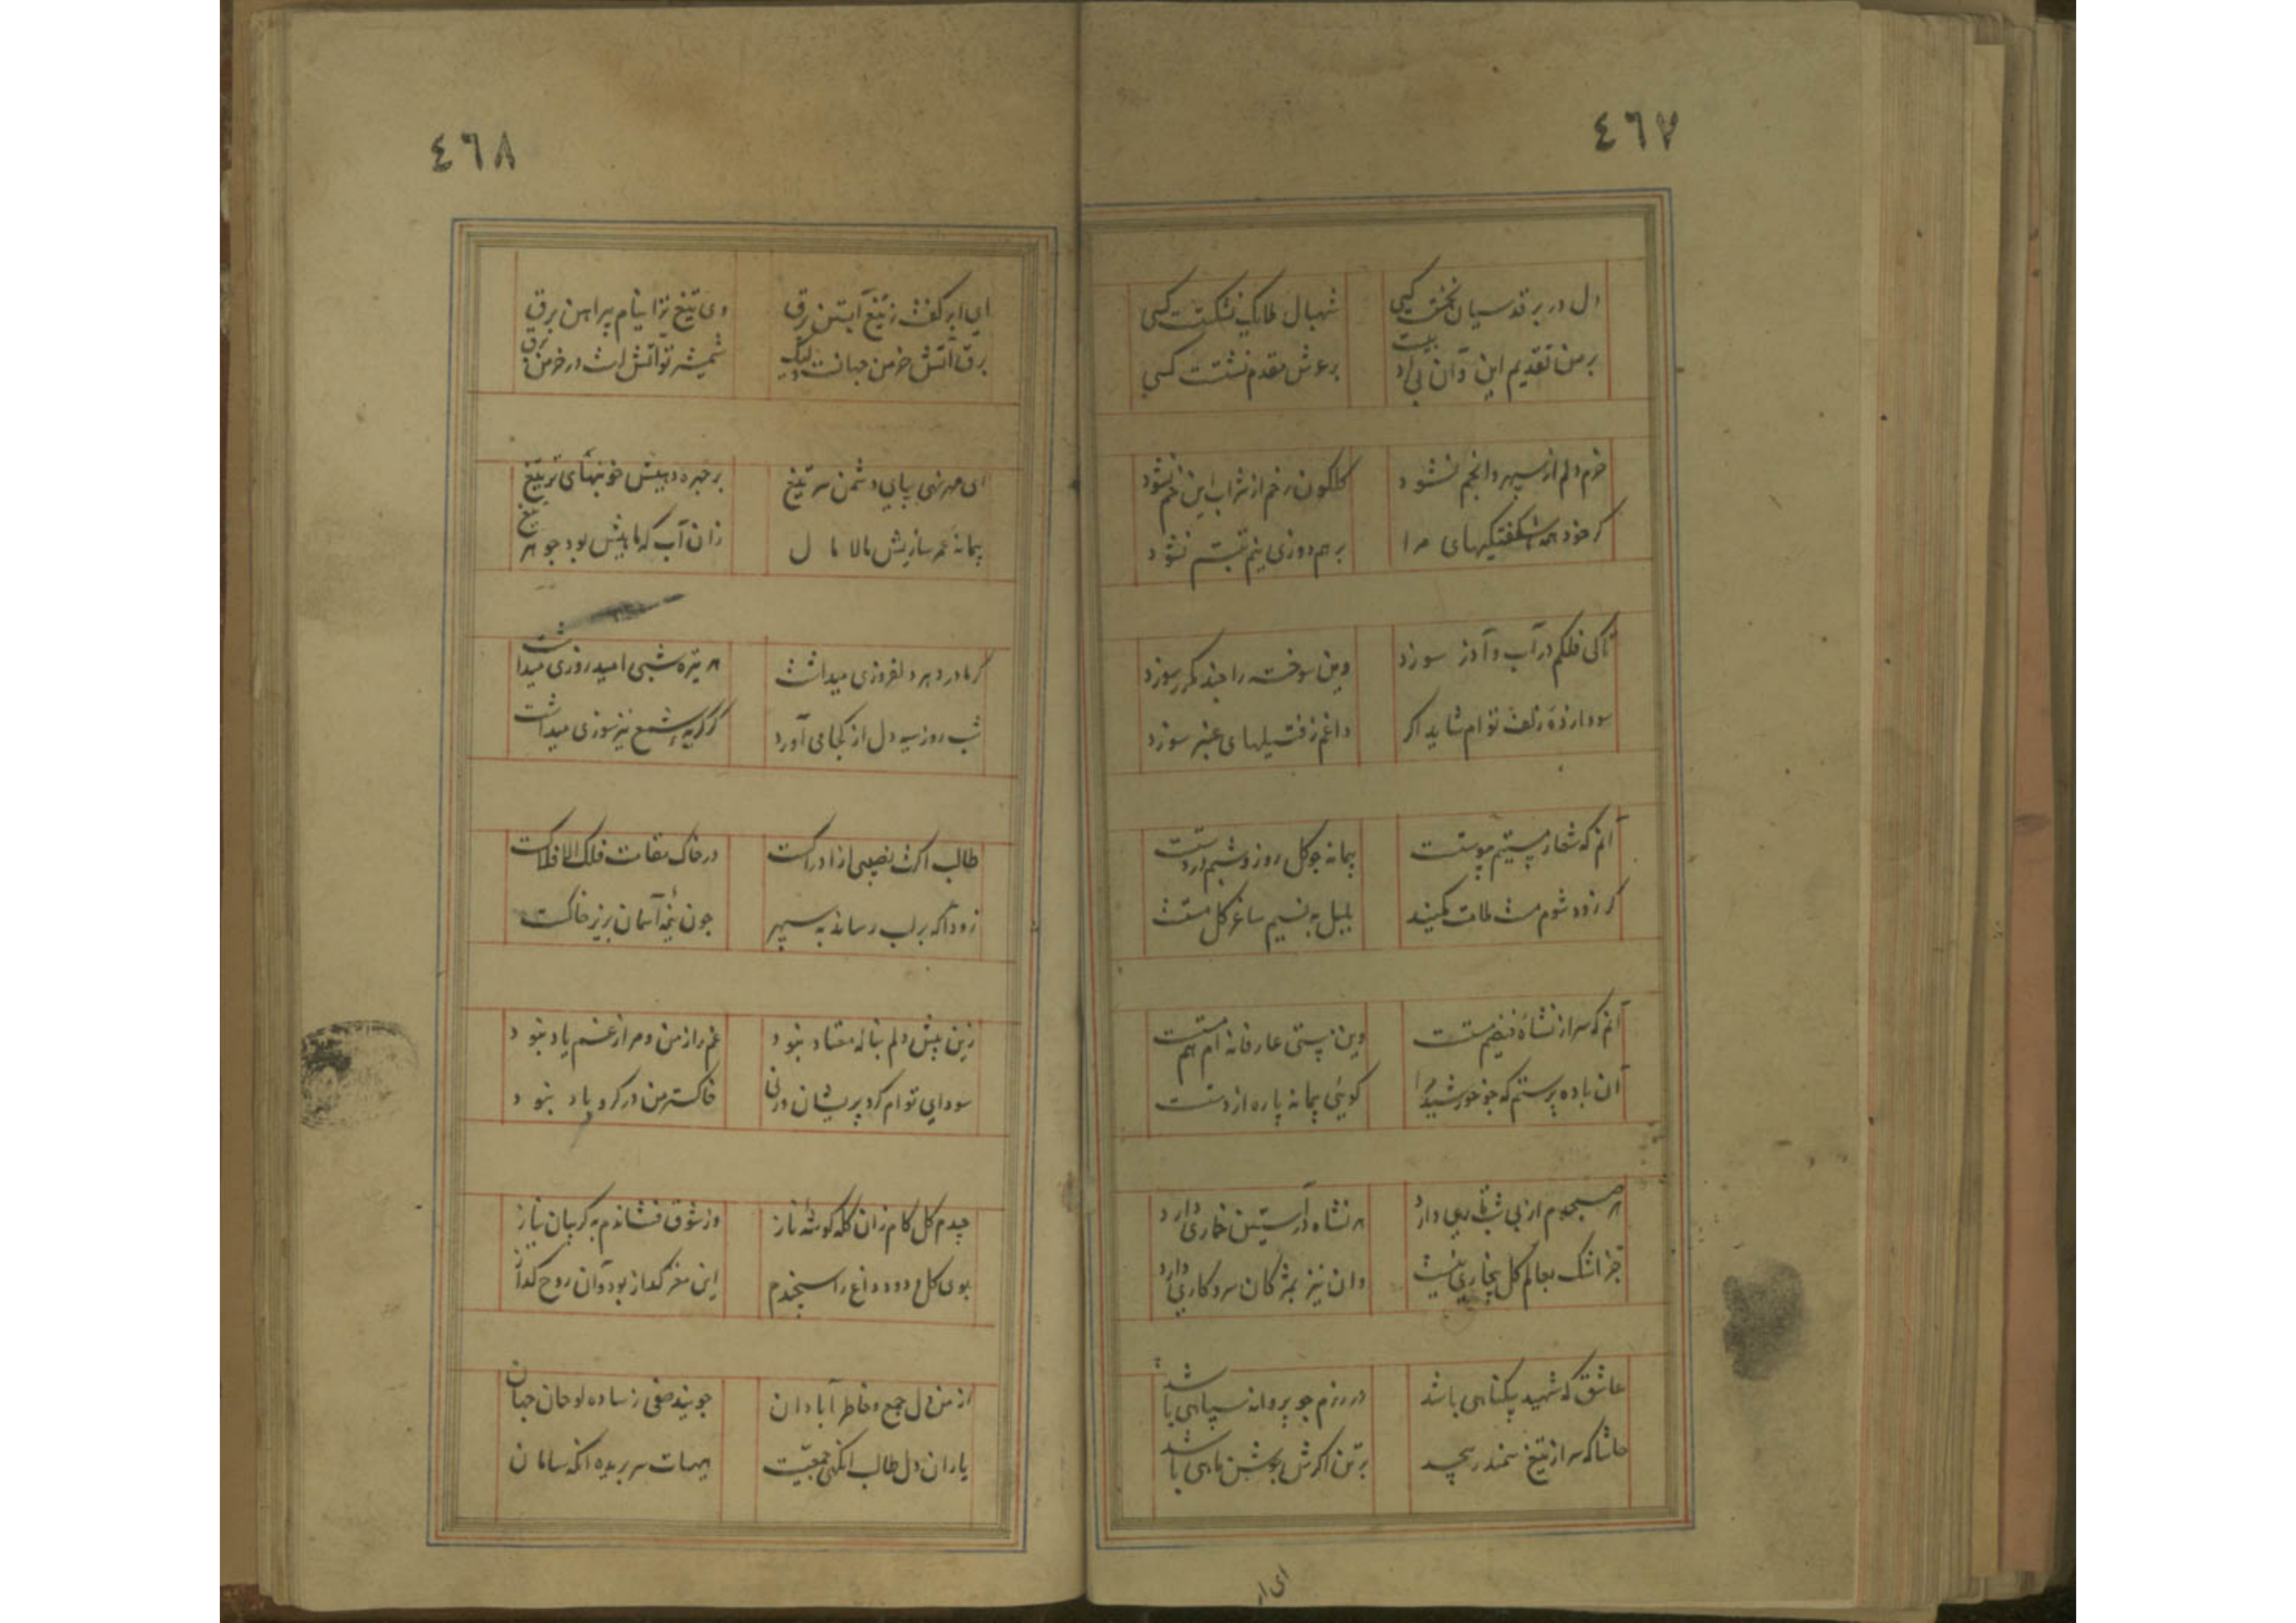 ٤٦٧
دل در بر قدسیان نخست کسی
شهبال ملایک نشکست کسی
بر من تقدیم این و آن بی ادبیست
بر عرش مقدم ننشست کسی
خرم دلم از سپهر و انجم نشود
گلگون رخم از شراب این خم نشود
گر خود همه شکفتگیهای مرا
بر هم دوزی نیم تبسم نشود
تا کی فلکم در آب و آذر سوزد
وین سوخته را چند مکرر سوزد
سودازده زلف توام شاید اگر
داغم ز فتیلهای عنبر سوزد
آنم که شعار مستیم پیوستست
پیمانه چو گل روز و شبم در دستست
گر زود شوم مست ملامت مکنید
بلبل به نسیم ساغر گل مستست
آنم که سر از نشاه فیضم مستست
وین مستی عارفانه ام هم
آن باده پرستم که چو خورشید مرا
گوئی پیمانه پاره از دستست
هر صبحدم از پی شب تاری دارد
هر نشاه در آستین خماری دارد
جز اشک بعالم گل بیخاری نیست
وان نیز بمژگان سر و کاری دارد
عاشق که شهید بیگناهی باشد
در رزم چو پروانه سپاهی باشد
حاشا که سر از تیغ سمندر پیچد
بر تن اگرش جوشن ماهی باشد
ای ابر
٤٦٨
ای ابر کفت ز تیغ آبستن برق
وی تیغ ترا نیام پیراهن برق
برق آتش خرمن جهانست ولیک
شمشیر تو آتش است در خرمن برق
ای مهر نهی بپای دشمن سر تیغ
بر چهره دهیش خونبهای تر تیغ
پیمانه عمر سازیش مالا مال
زان آب که ماهیش بود جوهر تیغ
گر ما در دهر دلفروزی میداشت
هر تیره شبی امید روزی میداشت
شب روز سیه دل از کجا می آورد
گر گریه شمع نیز سوزی میداشت
طالب اگرت نصیبی از ادراکست
در خاک مقامت فلک الافلاکست
زود آ که بر لب رساند به سپهر
چون پنجه آسمان بزیر خاکست
زین پیش دلم بناله معتاد نبود
غم را ز من و مرا ز غم یاد نبود
سودای توام کرد پریشان ورنی
خاکستر من در گرو باد نبود
چیدم گل کام زان کله گوشه ناز
وز شوق فشاندم به گریبان نیاز
بوی گل و دود داغ را سنجیدم
این مغز گداز بود و آن روح گداز
از من دل جمع و خاطر آبادان
جویند صفی ز ساده لوحان جهان
یاران دل طالب آنگهی جمعیت
هیهات سر بریده آنگه سامان